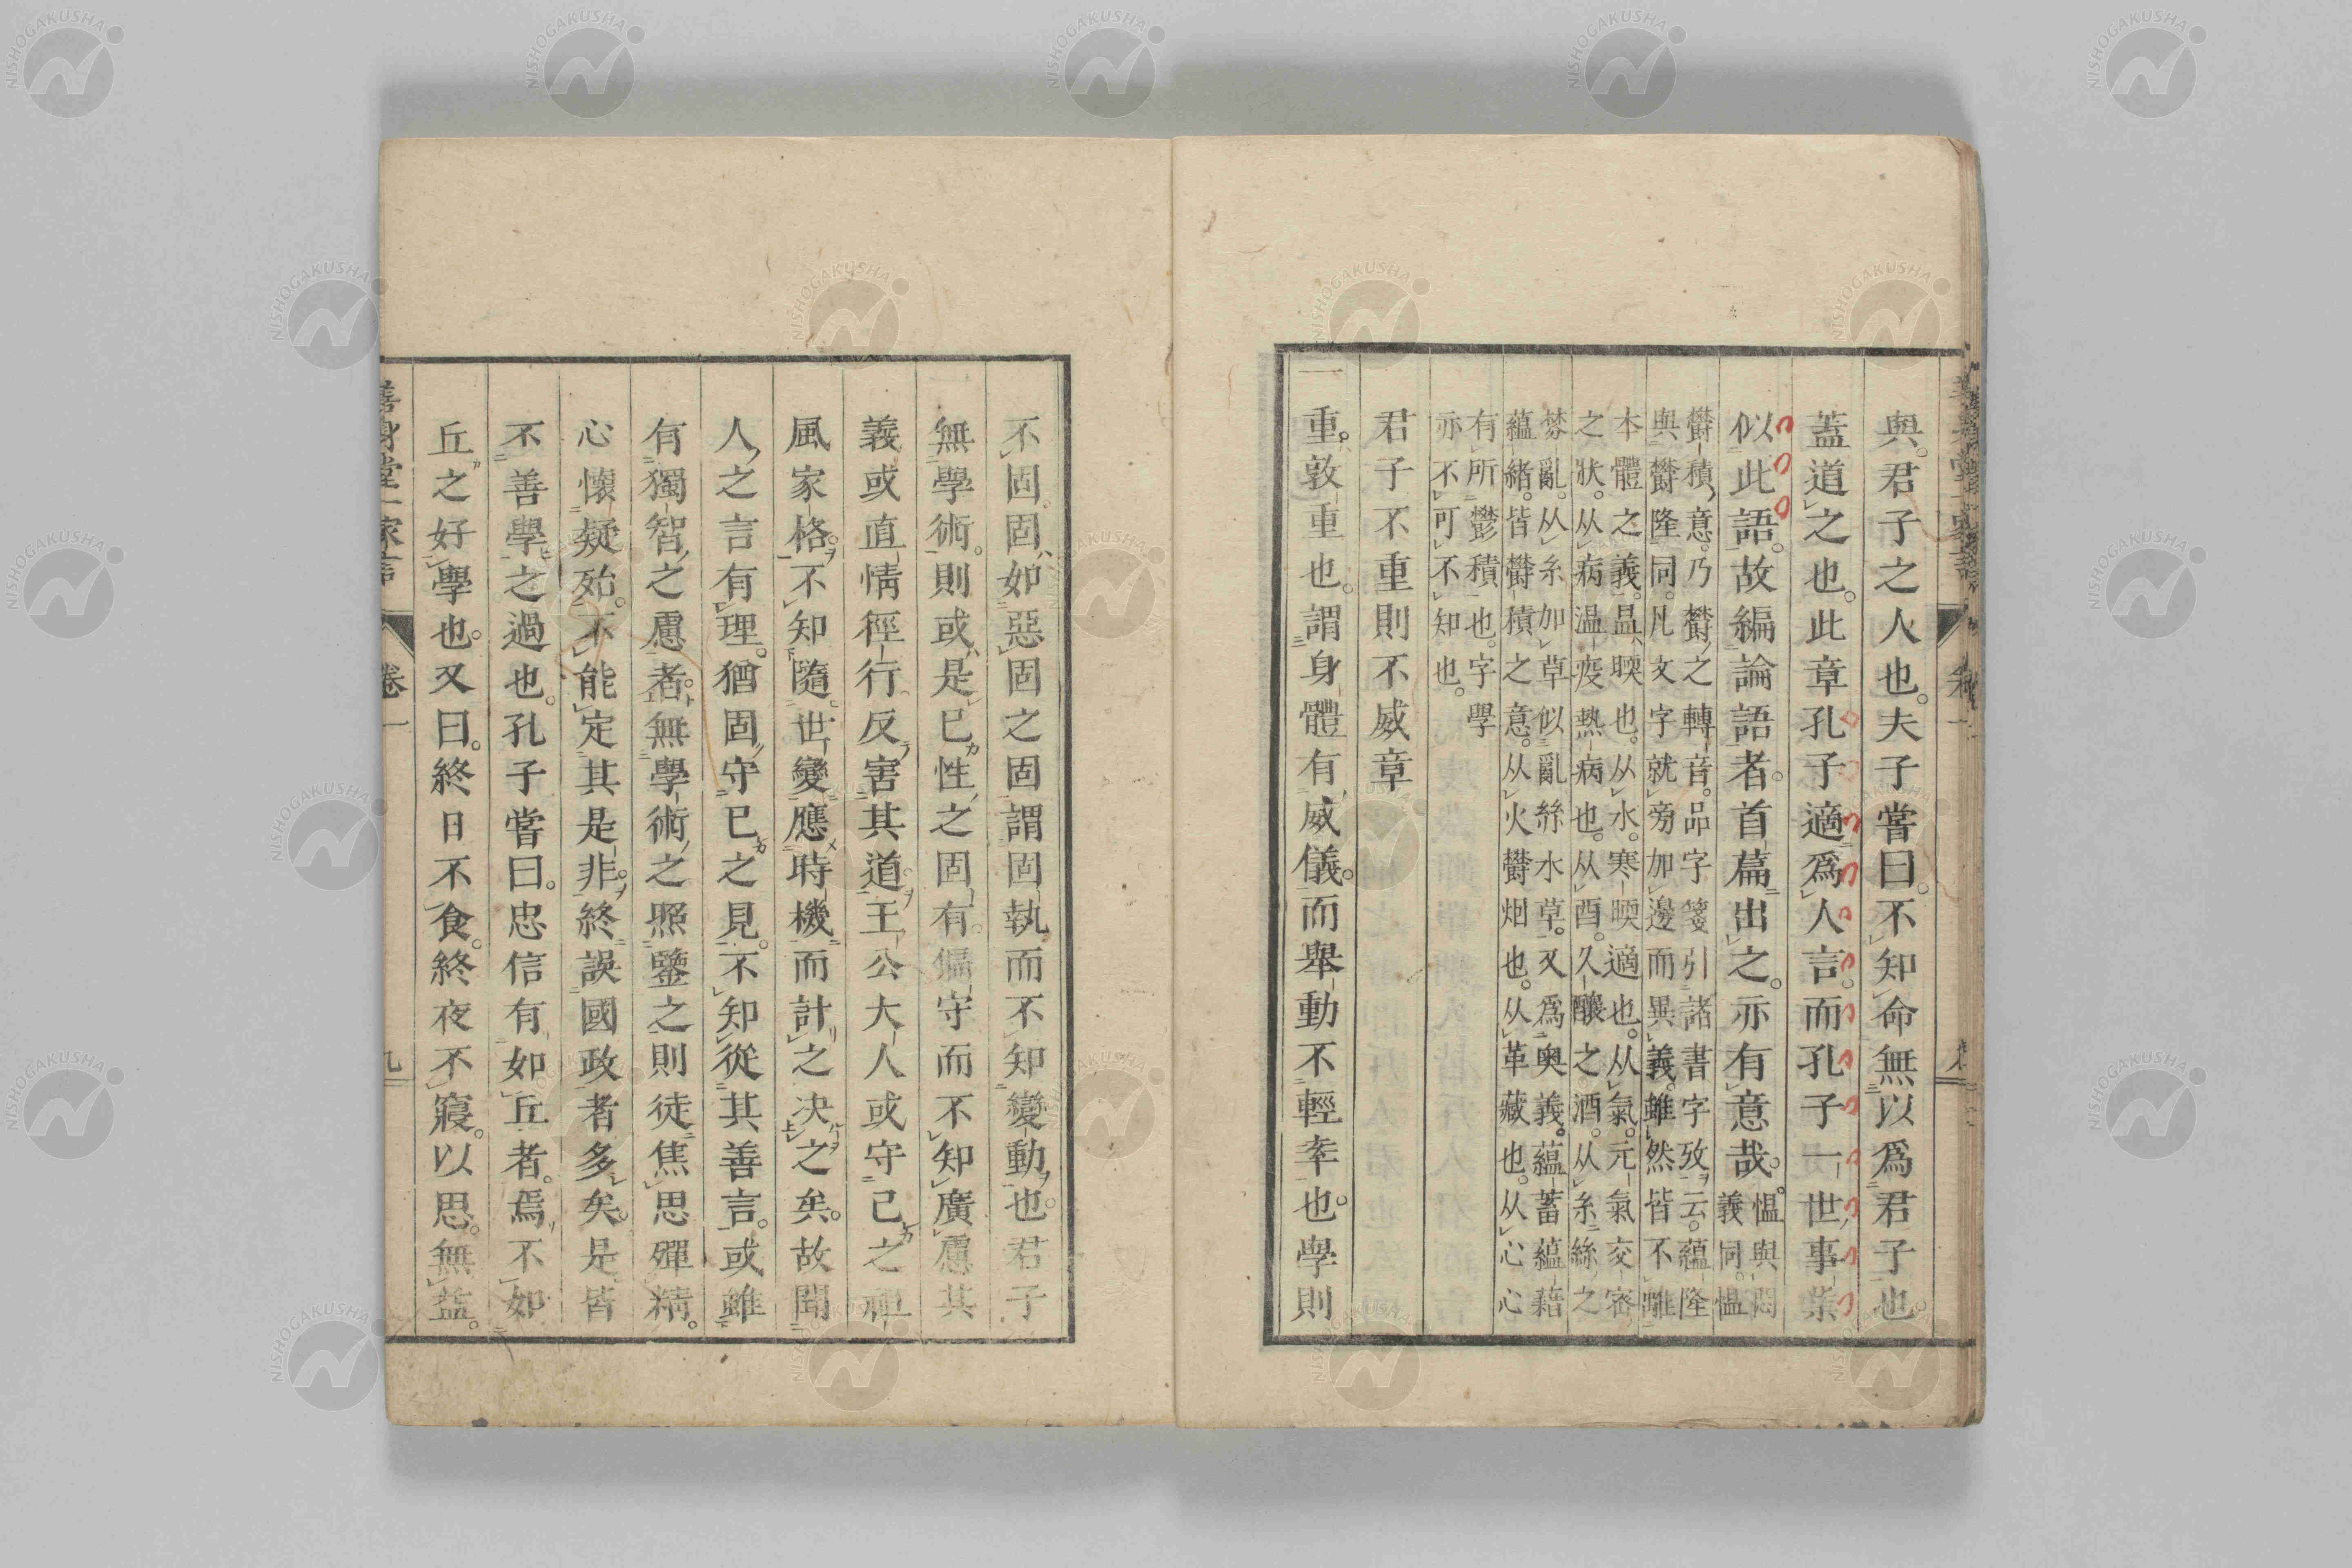 與。君子之人也。夫子嘗曰。不知命無以爲君子也
蓋道之也。此章孔子適爲人言。而孔子一世事業
似此語。故編論語者。首篇出之。亦有意哉。
慍與悶
義同。慍
欝積意。乃欝之轉音。品字箋引諸書字攷云。蘊隆
與欝隆同。凡文字就旁加邊而異義。雖然皆不離
本體之義。昷、暎也。从水。寒暎適也。从氣。元氣交密
之狀。从病温疫熱病也。从酉。久釀之酒。从糸絲之
棼亂。从糸加草似亂絲水草。又爲奧義。蘊蓄蘊藉
蘊緒。皆欝積之意。从火欝烟也。从革藏也。从心心
有所鬱積也。字學
亦不可不知也。
君子不重則不威章
一重。敦重也。謂身體有威儀。而舉動不輕率也。學則
不固。固、如惡固之固謂固執而不知變動也。君子
無學術。則或是已性之固有。偏守而不知廣慮其
義或直情徑行反害其道。王公大人或守己之
風家格。不知隨世變應時機而計之决之矣。故聞
人之言有理。猶固守已之見。不知從其善言。或雖
有獨智之慮者。無學術之照鑒之則徒焦思殫精。
心懷疑殆。不能定其是非。終誤國政者多矣。是皆
不善學之過也。孔子嘗曰。忠信有如丘者。焉不如
丘之好學也。又曰。終日不食。終夜不寢。以思。無益。
善身堂一家言
卷一
九